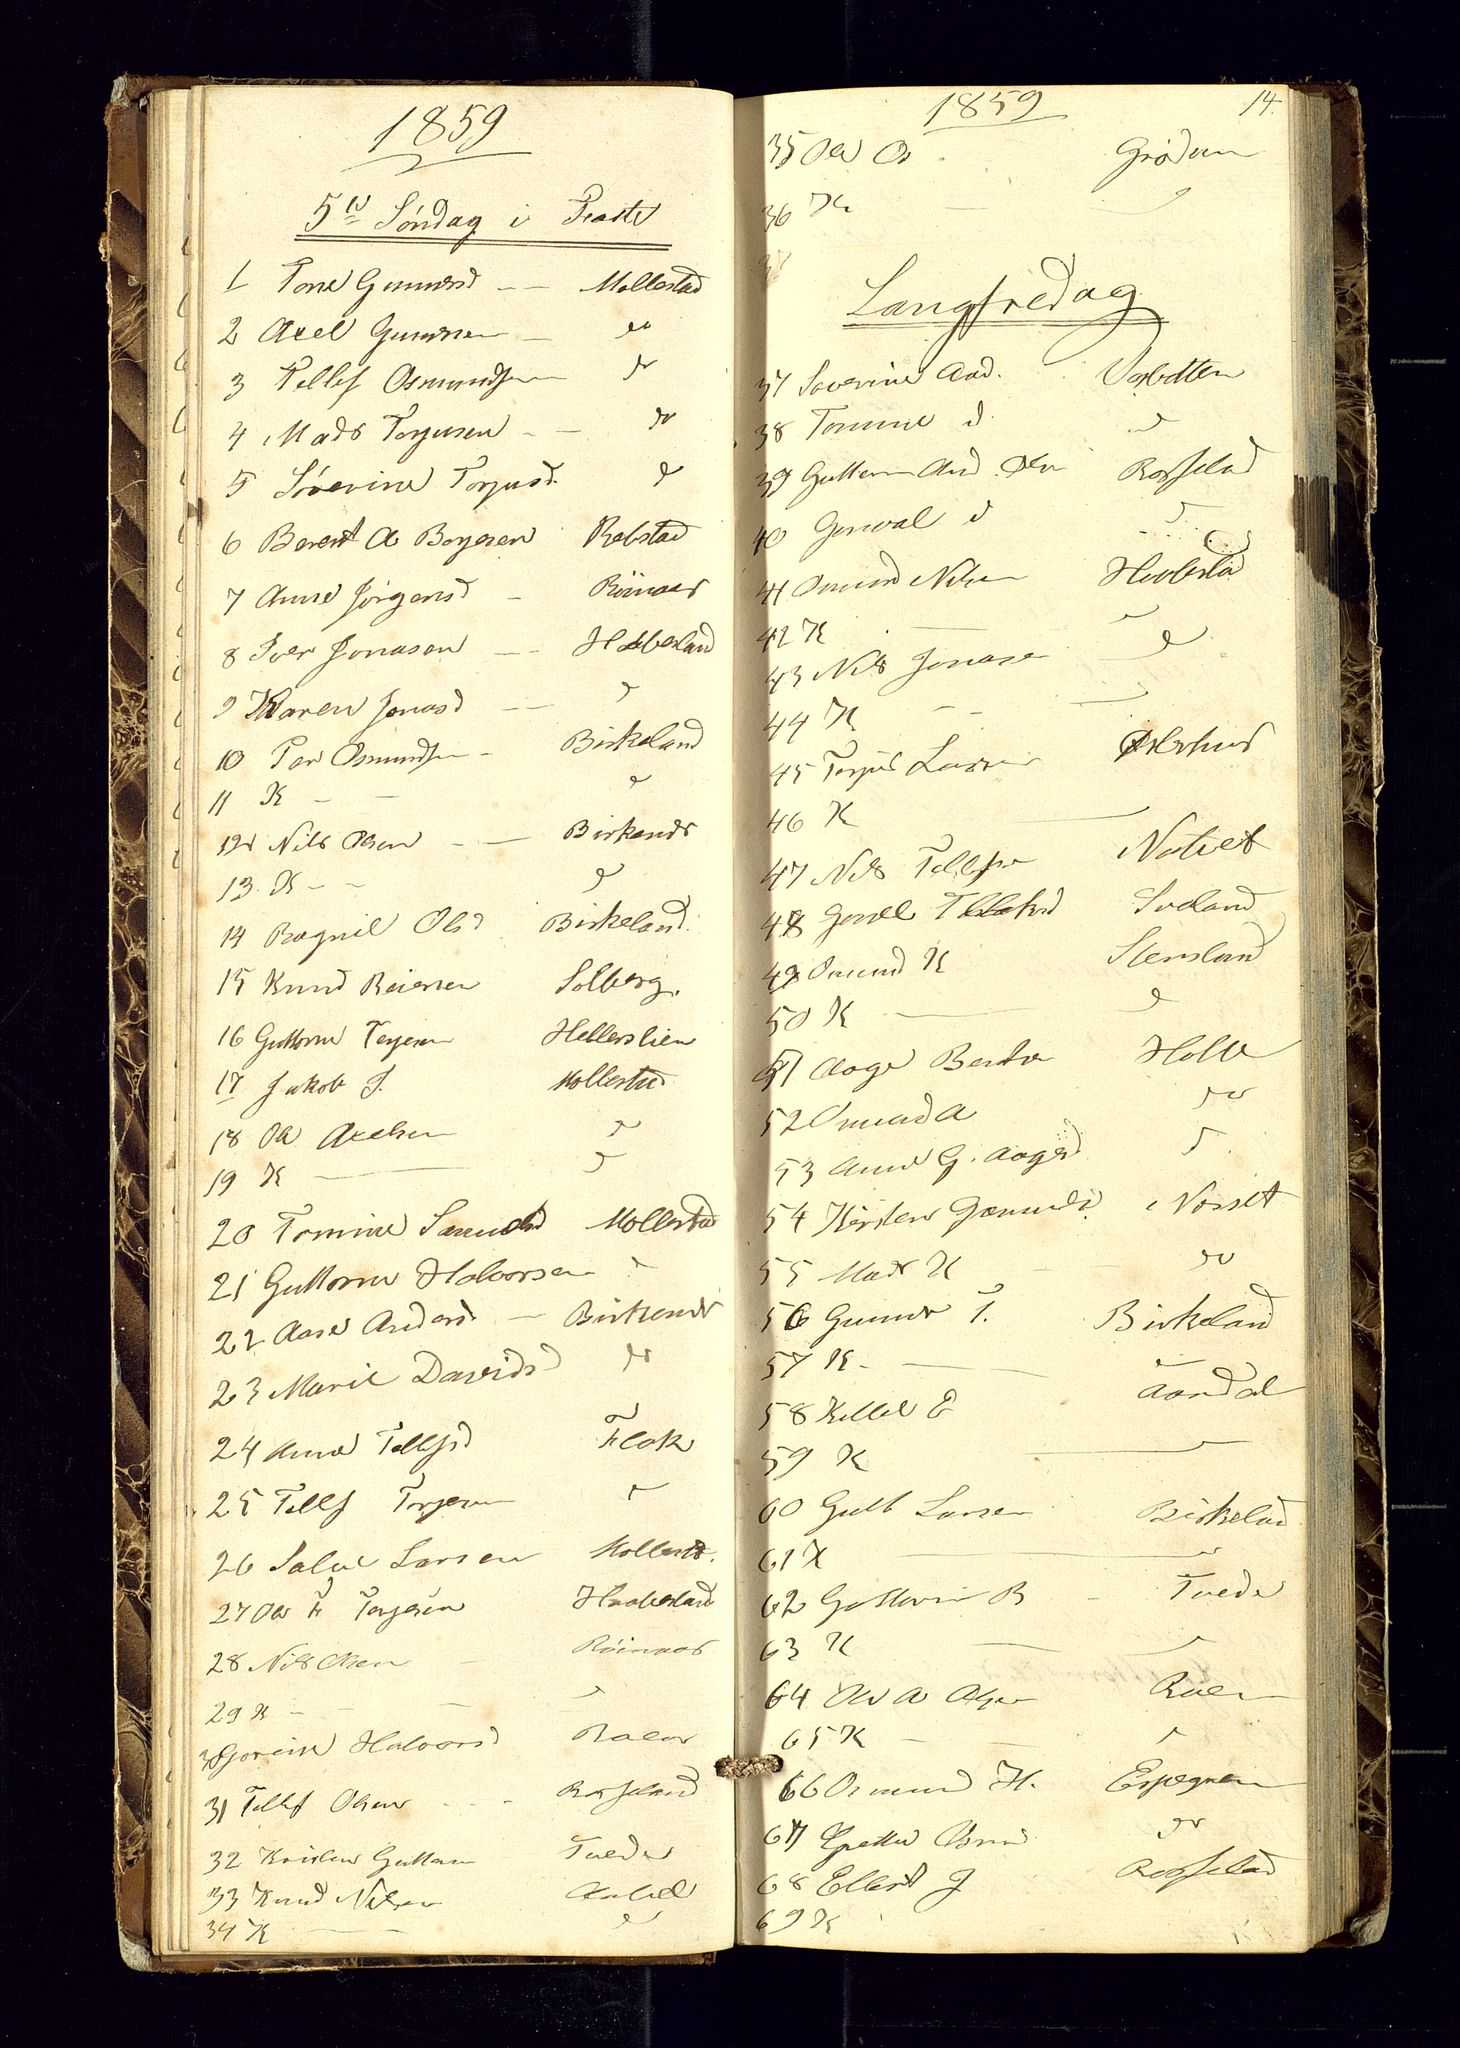 1859
5te Søndag i Faste
1 Tone Gunnersd -- Mollestad
2 Axel Gunersen - do
3 Tellef Osmundsen do
4 Mads Torjusen -- do
5 Severine Torjusd. do
6 Berent A Borjesen Rebstad
7 Anne Jørgensd - Röinaas
8 Iver Jonasen -- Haabesland
9 Karen Jonasd -- do
10 Per Osmundsen - Birkeland
11 K -- do
12 Nils Olsen -- Birkenes
13. K -- do
14 Ragnil Olsd Birkeland.
15 Knud Reiersen Solberg.
16 Guttorm Terjesen Hellerslien
17 Jakob J. Mollestad
18 Ole Axelsen do
19 K — do
20 Tomine Samuelsd Mollestad
21 Guttorm Halvorsen do
22 Aase Andersd - Birkenes
23 Marie Davidsd do
24 Anne Tellefsd Flak
25 Tellef Torjesen do
26 Salve Larsen Mollestd.
27 Ole T Terjesen Haabesland
28 Nils Olsen - Röinaas
29 K -- do
30 Gorine Halvorsd
31 Tellef Olsen --- Rosseland
32 Kristen Guttorm Tvede
33 Knud Nilsen
34 K -- do
1859
14
35 Ole Os Grødum
36 K — do
Langfredag
37 Severine Aad.
38 Tomine d do
39 Guttorm And. Rosseland
40 d do
41 Omund Nilsen Haabesland
42 K — do
43 Nils Jonasen do
44 K --
45 Torjus Larsen Østerhus
46 K —
47 Nils Tellefsen Natvet
48 Sveland
49 Omund K Stensland
50 K — do
51 Aage Bentsen Holte
52 Omund A do
53 Anne G. Aagesd do
54 Kirsten Gunnuldsd. Norset
55 Mads K do
56 Gunder T. Birkeland
57 K. —
58 Kittel E Aardal
59 K —
60 Gulb Larsen Birkeland
61 K —
62 Guttorm B - Tvede
63 K —
64 Ole A Olsen
65 K — do
66 Osmund H. Espegren
67 do
68 Ellert J Rosseland
69 K